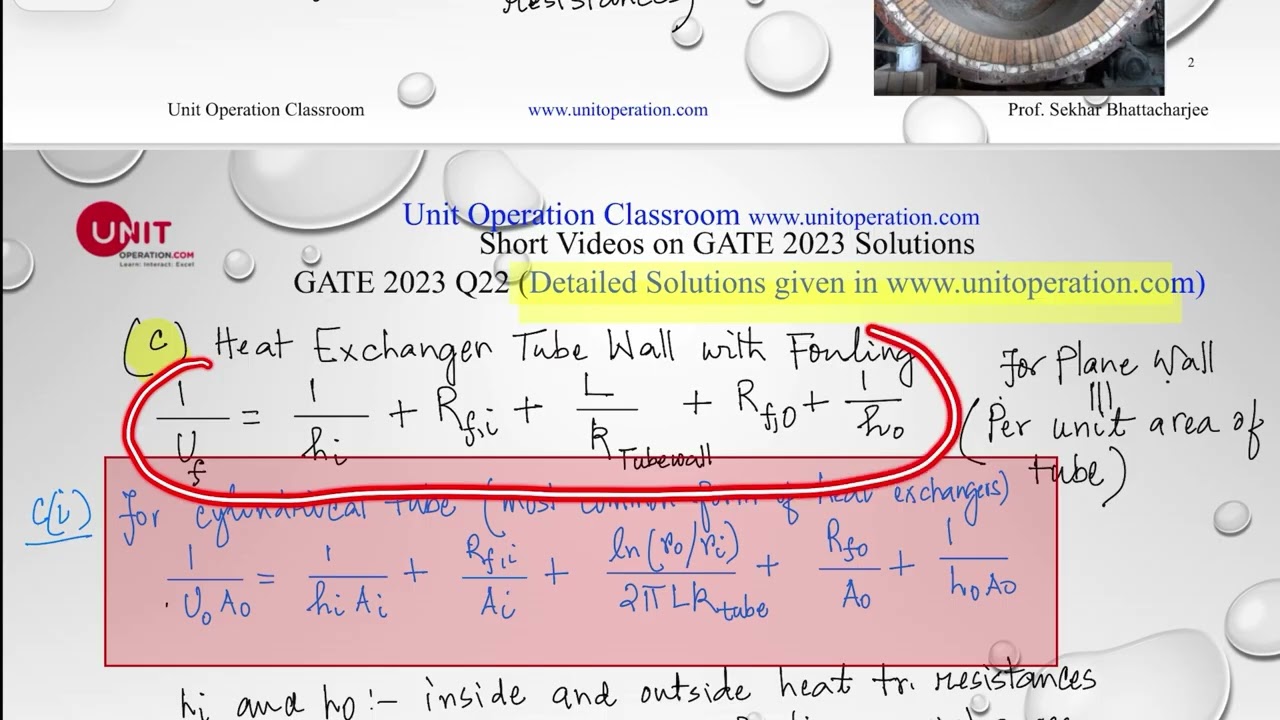 resistances)
2
Unit Operation Classroom www.unitoperation.com Prof. Sekhar Bhattacharjee
UNIT
OPERATION.COM
Learn: Interact: Excel
Unit Operation Classroom www.unitoperation.com
Short Videos on GATE 2023 Solutions
GATE 2023 Q22 (Detailed Solutions given in www.unitoperation.com)
(c) Heat Exchanger Tube Wall with Fouling
1/U_f = 1/h_i + R_f,i + L/k_Tubewall + R_f,o + 1/h_o
For Plane Wall
(Per unit area of
tube)
C(i) For cylindrical tube (most common form of heat exchangers)
1/(U_o A_o) = 1/(h_i A_i) + R_f,i/A_i + ln(r_o/r_i)/(2π L k_tube) + R_fo/A_o + 1/(h_o A_o)
h_i and h_o :- inside and outside heat tr. resistances